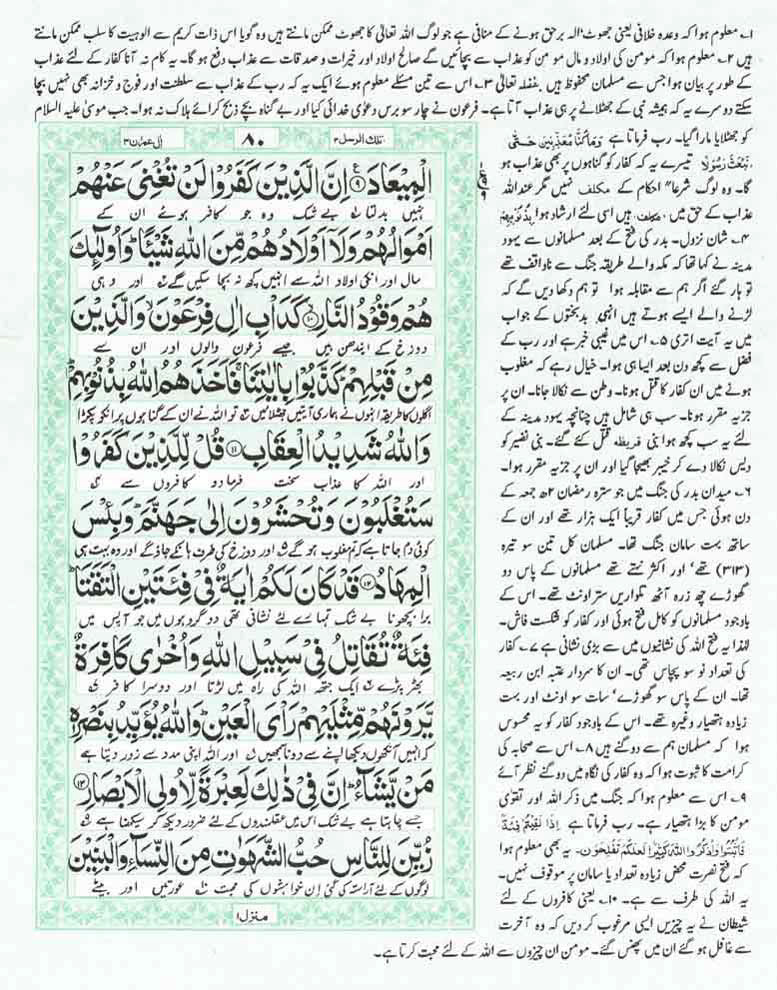 ۱۔ معلوم ہوا کہ وعدہ خلافی یعنی جھوٹ' الہ برحق ہونے کے منافی ہے جو لوگ اللہ تعالیٰ کا جھوٹ ممکن مانتے ہیں وہ گویا اس ذات کریم سے الوہیت کا سلب ممکن مانتے
ہیں ۲۔ معلوم ہوا کہ مومن کی اولاد و مال مومن کو عذاب سے بچائیں گے صالح اولاد اور خیرات و صدقات سے عذاب دفع ہوگا۔ یہ کام نہ آنا کفار کے لئے عذاب
کے طور پر بیان ہوا جس سے مسلمان محفوظ ہیں بفضلہ تعالیٰ ۳۔ اس سے تین مسئلے معلوم ہوئے ایک یہ کہ رب کے عذاب سے سلطنت اور فوج و خزانہ بھی نہیں بچا
سکتے دوسرے یہ کہ ہمیشہ نبی کے جھٹلانے پر ہی عذاب آتا ہے۔ فرعون نے چار سو برس دعوٰی خدائی کیا اور بے گناہ بچے ذبح کرائے ہلاک نہ ہوا۔ جب موسیٰ علیہ السلام
کو جھٹلایا مارا گیا۔ رب فرماتا ہے وَمَاكُنَّا مُعَذِّبِيْنَ حَتّٰى
نَبْعَثَ رَسُوْلًا تیسرے یہ کہ کفار کو گناہوں پر بھی عذاب ہو
گا۔ وہ لوگ شرعا" احکام کے مکلف نہیں مگر عند اللہ
عذاب کے حق میں مکلف ہیں اسی لئے ارشاد ہوا بِذُنُوْبِهِمْ
۴۔ شان نزول۔ بدر کی فتح کے بعد مسلمانوں سے یہود
مدینہ نے کہا تھا کہ مکہ والے طریقہ جنگ سے ناواقف تھے
تو ہار گئے اگر ہم سے مقابلہ ہوا تو ہم دکھا دیں گے کہ
لڑنے والے ایسے ہوتے ہیں انہی بدبختوں کے جواب
میں یہ آیت اتری ۵۔ اس میں غیبی خبر ہے اور رب کے
فضل سے کچھ دن بعد ایسا ہی ہوا۔ خیال رہے کہ مغلوب
ہونے میں ان کفار کا قتل ہونا۔ وطن سے نکالا جانا۔ ان پر
جزیہ مقرر ہونا۔ سب ہی شامل ہیں چنانچہ یہود مدینہ کے
لئے یہ سب کچھ ہوا بنی قریظہ قتل کئے گئے۔ بنی نضیر کو
دیس نکالا دے کر خیبر بھیجا گیا اور ان پر جزیہ مقرر ہوا۔
۶۔ میدان بدر کی جنگ میں جو سترہ رمضان ۲ھ جمعہ کے
دن ہوئی جس میں کفار قریبا ایک ہزار تھے اور ان کے
ساتھ بہت سامان جنگ تھا۔ مسلمان کل تین سو تیرہ
(۳۱۳) تھے' اور اکثر نہتے تھے مسلمانوں کے پاس دو
گھوڑے چھ زرہ آٹھ تلواریں ستر اونٹ تھے۔ اس کے
باوجود مسلمانوں کو کامل فتح ہوئی اور کفار کو شکست فاش۔
لہٰذا یہ فتح اللہ کی نشانیوں میں سے بڑی نشانی ہے ۷۔ کفار
کی تعداد نو سو پچاس تھی۔ ان کا سردار عتبہ ابن ربیعہ
تھا۔ ان کے پاس سو گھوڑے' سات سو اونٹ اور بہت
زیادہ ہتھیار وغیرہ تھے۔ اس کے باوجود کفار کو یہ محسوس
ہوا کہ مسلمان ہم سے دوگنے ہیں ۸۔ اس سے صحابہ کی
کرامت کا ثبوت ہوا کہ وہ کفار کی نگاہ میں دوگنے نظر آئے
۹۔ اس سے معلوم ہوا کہ جنگ میں ذکر اللہ اور تقوٰی
مومن کا بڑا ہتھیار ہے۔ رب فرماتا ہے اِذَا لَقِيْتُمْ فِئَةً
فَاثْبُتُوْا وَاذْكُرُوا اللّٰهَ كَثِيْرًا لَّعَلَّكُمْ تُفْلِحُوْنَ۔ یہ بھی معلوم ہوا
کہ فتح نصرت محض زیادہ تعداد یا سامان پر موقوف نہیں۔
یہ اللہ کی طرف سے ہے۔ ۱۰۔ یعنی کافروں کے لئے
شیطان نے یہ چیزیں ایسی مرغوب کر دیں کہ وہ آخرت
سے غافل ہو گئے ان میں پھنس گئے۔ مومن ان چیزوں سے اللہ کے لئے محبت کرتا ہے۔
تلك الرسل ۳
۸۰
اٰل عمرٰن ۳
الْمِيْعَادَ ۹ اِنَّ الَّذِيْنَ كَفَرُوْا لَنْ تُغْنِىَ عَنْهُمْ
نہیں بدلتا بے شک وہ جو کافر ہوئے ان کے
اَمْوَالُهُمْ وَلَآ اَوْلَادُهُمْ مِّنَ اللّٰهِ شَيْـًٔا وَاُولٰٓئِكَ
مال اور انکی اولاد اللہ سے انہیں کچھ نہ بچا سکیں گے اور وہی
هُمْ وَقُوْدُ النَّارِ ۱۰ كَدَاْبِ اٰلِ فِرْعَوْنَ وَالَّذِيْنَ
دوزخ کے ایندھن ہیں جیسے فرعون والوں اور ان سے
مِنْ قَبْلِهِمْ كَذَّبُوْا بِاٰيٰتِنَا فَاَخَذَهُمُ اللّٰهُ بِذُنُوْبِهِمْ
اگلوں کا طریقہ انہوں نے ہماری آیتیں جھٹلائیں تو اللہ نے ان کے گناہوں پر انکو پکڑا
وَاللّٰهُ شَدِيْدُ الْعِقَابِ ۱۱ قُلْ لِّلَّذِيْنَ كَفَرُوْا
اور اللہ کا عذاب سخت فرما دو کافروں سے
سَتُغْلَبُوْنَ وَتُحْشَرُوْنَ اِلٰى جَهَنَّمَ وَبِئْسَ
کوئی دم جاتا ہے کہ تم مغلوب ہو گے اور دوزخ کی طرف ہانکے جاؤ گے اور وہ بہت ہی
الْمِهَادُ ۱۲ قَدْ كَانَ لَكُمْ اٰيَةٌ فِىْ فِئَتَيْنِ الْتَقَتَا
برا بچھونا بے شک تمہارے لئے نشانی تھی دو گروہوں میں جو آپس میں
فِئَةٌ تُقَاتِلُ فِىْ سَبِيْلِ اللّٰهِ وَاُخْرٰى كَافِرَةٌ
بھڑ پڑے ایک جتھہ اللہ کی راہ میں لڑتا اور دوسرا کافر
يَّرَوْنَهُمْ مِّثْلَيْهِمْ رَاْىَ الْعَيْنِ وَاللّٰهُ يُؤَيِّدُ بِنَصْرِهٖ
کہ انہیں آنکھوں دیکھا اپنے سے دونا سمجھیں اور اللہ اپنی مدد سے زور دیتا ہے
مَنْ يَّشَآءُ اِنَّ فِىْ ذٰلِكَ لَعِبْرَةً لِّاُولِى الْاَبْصَارِ ۱۳
جسے چاہتا ہے بے شک اس میں عقلمندوں کے لئے ضرور دیکھ کر سیکھنا ہے
زُيِّنَ لِلنَّاسِ حُبُّ الشَّهَوٰتِ مِنَ النِّسَآءِ وَالْبَنِيْنَ
لوگوں کے لئے آراستہ کی گئی ان خواہشوں کی محبت عورتیں اور بیٹے
منزل ۱